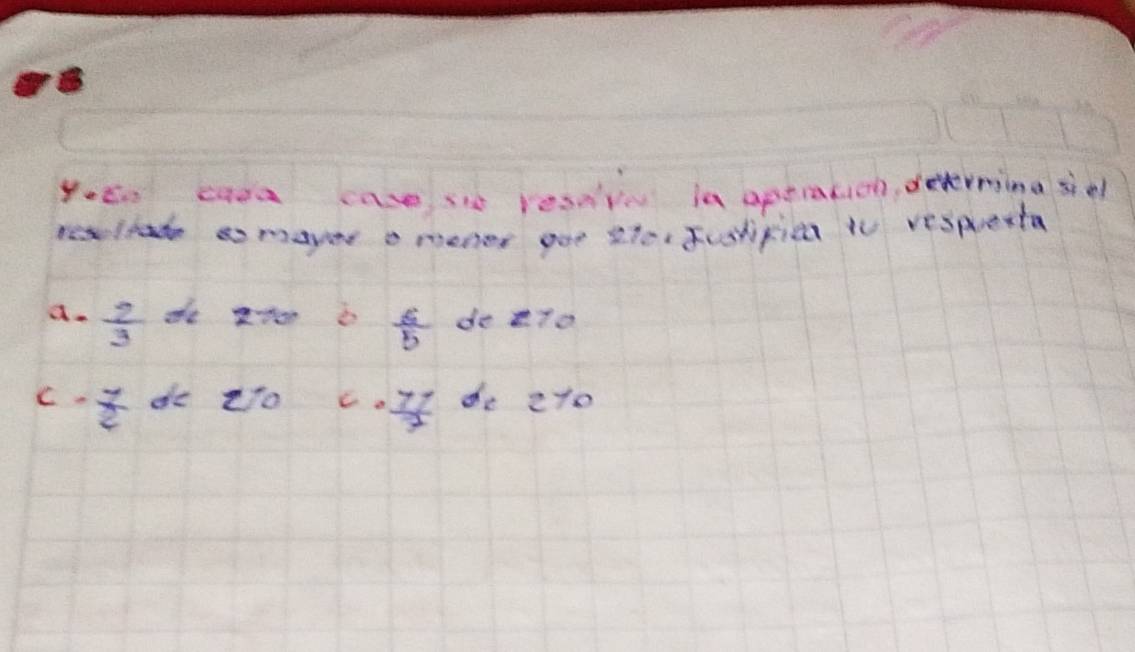 4. En cada caso, sin resolver la operación, determina si el
resultado es mayor o menor que 210. Justifica tu respuesta
a. 2/3 de 210 b 6/5 de 210
c. 7/2 de 210 c. de 210